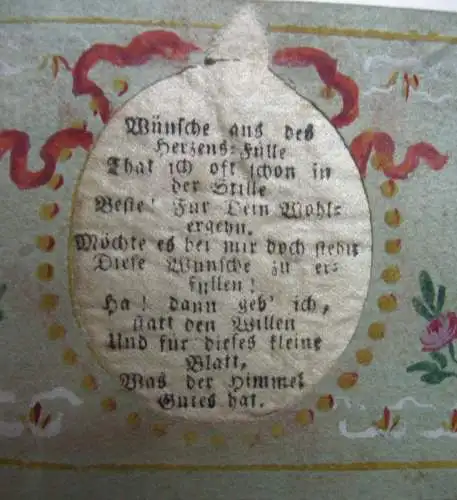 Wünsche aus des
Herzens-Fülle
That ich oft schon in
der Stille
Beste! Für Dein Wohl-
ergehn.
Möchte es bei mir doch stehn
Diese Wünsche zu er-
füllen!
Ha! dann geb' ich,
statt den Willen
Und für dieses kleine
Blatt,
Was der Himmel
Gutes hat.